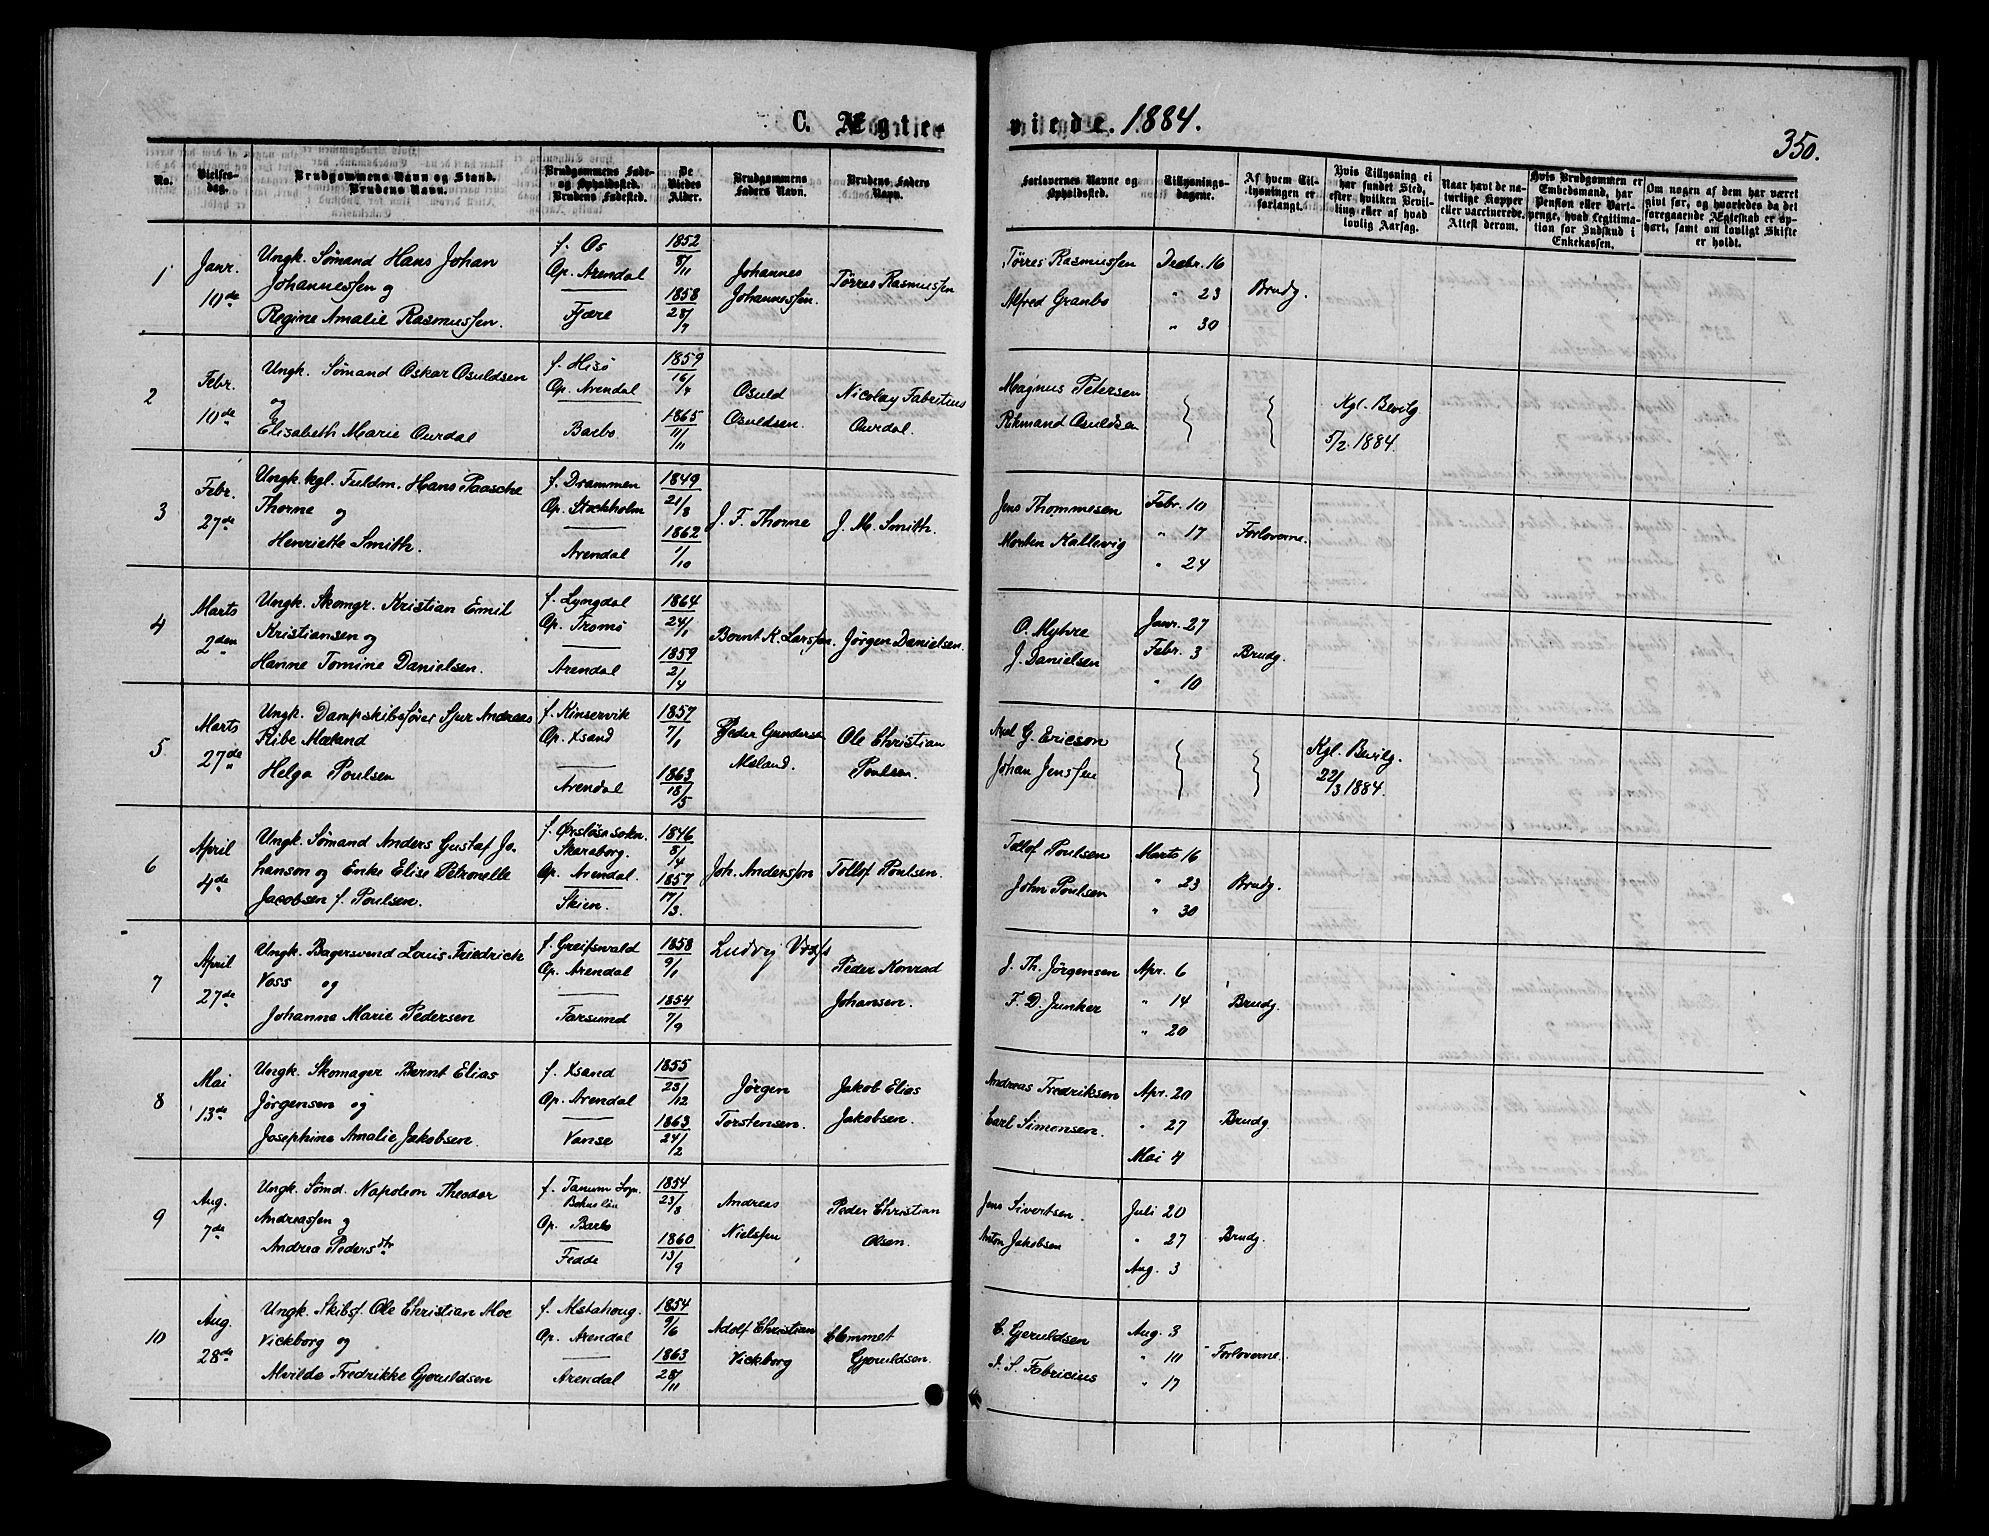 C. Ægteviede. 1884.
350.
No.
Vielsesdag.
Brudgommens Navn og Stand.
Brudens Navn.
Brudgommens Føde-
og Opholdssted.
Brudens Fødested.
De
Viedes
Alder.
Brudgommens
Faders Navn.
Brudens Faders
Navn.
Forlovernes Navne og
Opholdssted.
Tillysnings-
dagene.
Af hvem Til-
lysningen er
forlangt.
Hvis Tillysning ei
har fundet Sted,
efter hvilken Bevil-
ling eller af hvad
lovlig Aarsag.
Naar havt de na-
turlige Kopper
eller vaccinerede.
Attest derom.
Hvis Brudgommen er
Embedsmand, har
Pension eller Vart-
penge, hvad Legitima-
tion for Indskud i
Enkekassen.
Om nogen af dem har været
givt før, og hvorledes da det
foregaaende Ægteskab er op-
hørt, samt om lovligt Skifte
er holdt.
1
Janr.
10de
Ungk. Sømand Hans Johan
Johannessen og
Regine Amalie Rasmussen.
f. Os
Op. Arendal
Fjære
1852
8/11
1858
28/7
Johannes
Johannessen.
Tørres Rasmussen
Tørres Rasmussen
Alfred Granbo
Decbr. 16
" 23
" 30
Brudg.
2
Febr.
10de
Ungk. Sømand Oskar Osuldsen
og
Elisabeth Marie Ourdal
f. Hisø
Op. Arendal
Barbo
1859
16/7
1865
11/11
Osuld
Osuldsen.
Nicolay Fabritius
Ourdal.
Magnus Petersen
Osuldsen
Kgl. Bevilg
5/2 1884.
3
Febr.
27de
Ungk. kgl. Fuldm. Hans Paasche
Thorne og
Henriette Smith.
f. Drammen
Op. Stockholm
Arendal
1849
21/8
1862
1/10
J. F. Thorne
J. M. Smith.
Jens Thommesen
Morten Kallevig
Febr. 10
" 17
" 24
Forloverne.
4
Marts
2den
Ungk. Skomgr. Kristian Emil
Kristiansen og
Hanne Tomine Danielsen.
f. Lyngdal
Op. Tromø
Arendal
1864
24/1
1859
2/4
Bernt K. Larssen.
Jørgen Danielsen.
O. Myhre
J. Danielsen
Janr. 27
Febr. 3
" 10
Brudg.
5
Marts
27de
Ungk. Dampskibsfører Sjur Andreas
Ribe Mæland
Helga Poulsen
f. Kinservik
Op. Xsand
Arendal
1857
7/1
1863
18/5
Peder Gundersen
Meland.
Ole Christian
Poulsen.
Axel G. Ericson
Johan Jenssen
Kgl. Bevilg.
22/3 1884.
6
April
4de
Ungk. Sømand Anders Gustaf Jo-
hanson og Enke Elise Petronelle
Jacobsen f. Poulsen.
f. Ørsløsa sokn.
Skaraborg.
Op. Arendal.
Skien.
1846
8/4
1857
17/3.
Joh. Anderssøn
Tollof Poulsen.
Tollof Poulsen
John Poulsen
Marts 16
" 23
" 30
Brudg.
7
April
27de
Ungk. Bagersvend Louis Friedrich
Voss og
Johanne Marie Pedersen
f. Greifswald
Op. Arendal
Farsund
1858
9/1
1854
7/9
Ludvig Voss
Peder Konrad
Johansen.
J. Th. Jørgensen
F. D. Junker
Apr. 6
" 14
" 20
Brudg.
8
Mai
13de
Ungk. Skomager Bernt Elias
Jørgensen og
Josephine Amalie Jakobsen.
f. Xsand
Op. Arendal
Vanse
1855
23/12
1863
24/2
Jørgen
Torstensen.
Jakob Elias
Jakobsen.
Andreas Fredriksen
Carl Simonsen.
Apr. 20
" 27
Mai 4
Brudg.
9
Aug.
7de
Ungk. Sømd. Napoleon Theodor
Andreassen og
Andrea Pedersdtr
f. Tanum Sogn
Bohuslän
Op. Barbo
Fedde
1854
23/8
1860
13/9
Andreas
Nielssen
Peder Christian
Olsen.
Jens Sivertsen.
Anton Jakobsen
Juli 20
" 27
Aug. 3
Brudg.
10
Aug.
28de
Ungk. Skibsf. Ole Christian Moe
Vickborg og
Alvilde Fredrikke Gjeruldsen
f. Alstahoug.
Op. Arendal
Arendal
1854
9/6
1863
28/11
Adolf Christian
Vickborg
Clemmet
Gjeruldsen.
C. Gjeruldsen
J. S. Fabricius
Aug. 3
" 10
" 17
Forloverne.